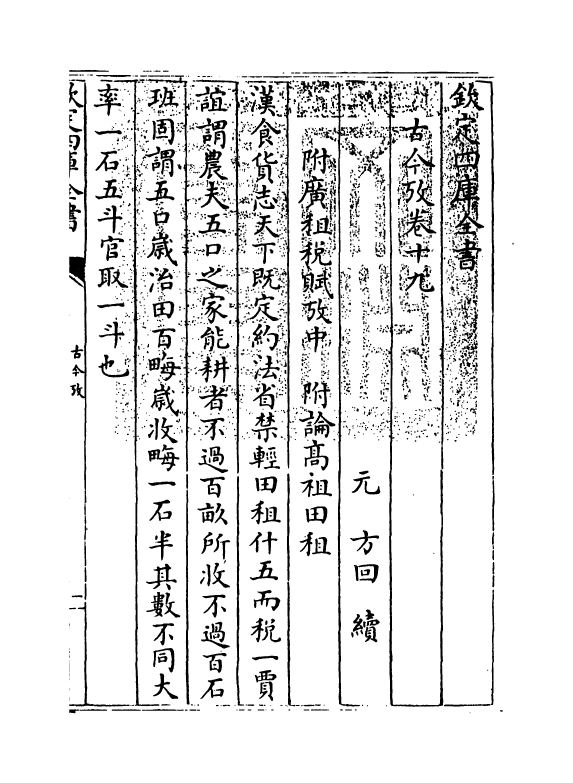 欽定四庫全書
古今攷卷十九
元 方回 續
附廣租稅賦攷中 附論髙祖田租
漢食貨志天下既定約法省禁輕田租什五而税一賈
誼謂農夫五口之家能耕者不過百畝所收不過百石
班固謂五口歲治田百畮歲收畮一石半其數不同大
率一石五斗官取一斗也
欽定四庫全書
古今攷